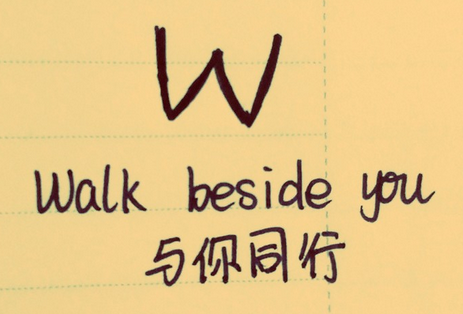 W
Walk beside you
与你同行